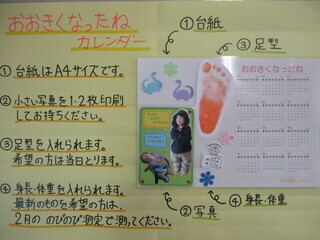 おおきくなったね
カレンダー
① 台紙
③ 足型
① 台紙はA4サイズです。
② 小さい写真を1・2枚印刷
してお持ちください。
③ 足型を入れられます。
希望の方は当日とります。
④ 身長・体重を入れられます。
最新のものを希望の方は、
2月ののびのび測定で測ってください。
おおきくなったね
② 写真
④ 身長・体重